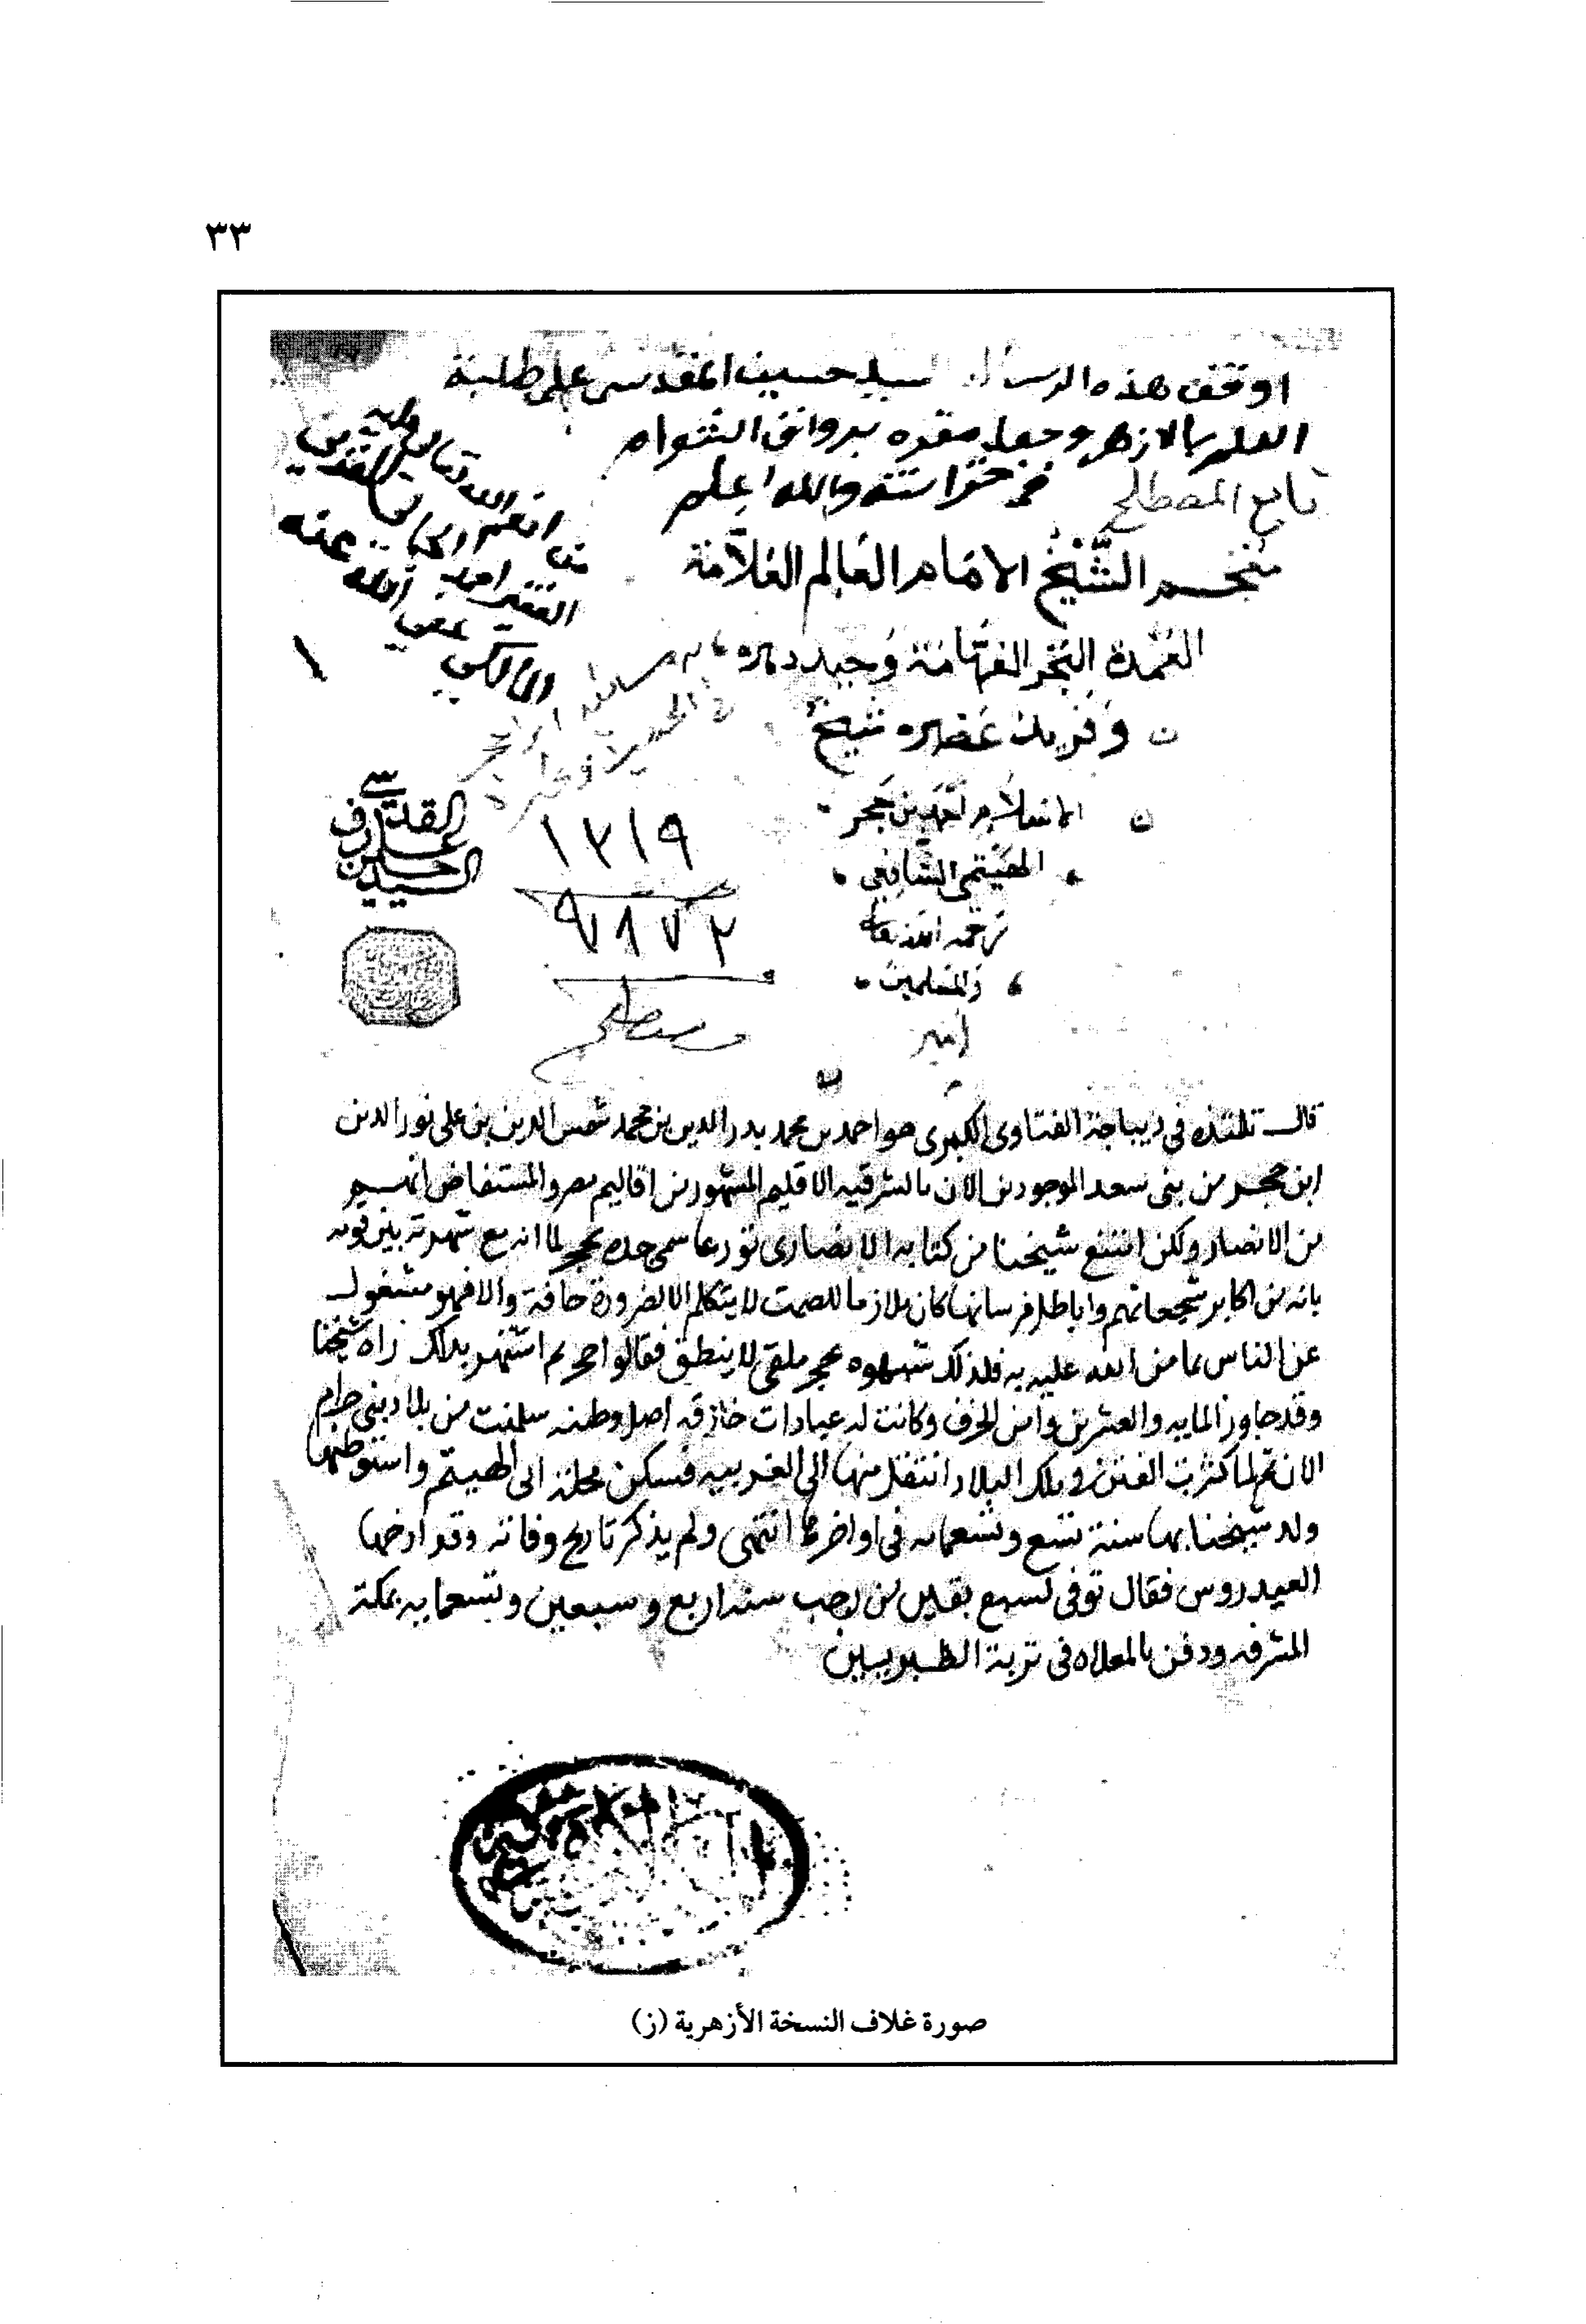 ٣٣
اوقف هذه الرسا السيد حسين المقدسي على طلبة
العلم بالازهر وجعل مقره برواق الشوام
خزانته والله اعلم
تابع المصطلح
معجم الشيخ الامام العالم العلامة
العمدة البحر الفهامة وحيد دهره
وفريد عصره شيخ
الاسلام احمد بن حجر
الهيتمي الشافعي
رحمه الله تعا
والمسلمين
امين
من انعم الله تعالى عليه
الفقير احمد المقدسي
المالكي عفى الله عنه
١
القدسي
عارف
حسين
السيد
١٢١٩
٩٧٨٧٢
مصطلح
قال تلميذه في ديباجة الفتاوى الكبرى هو احمد بن محمد بدر الدين بن محمد شمس الدين بن علي نور الدين
ابن حجر من بني سعد الموجودين الان بالشرقيه الاقليم المشهور من اقاليم مصر والمستفاض انهم
من الانصار ولكن امتنع شيخنا من كتابه الانصاري تورعا سمى جده بحجر لما انه مع شهرته بين قومه
بانه من اكابر شجعانهم وابا طل فرسانها كان ملازما للصمت لا يتكلم الا لضرورة حافة والا فهو مشغول
عن الناس بما من الله عليه به فلذلك شبهوه بحجر ملقى لا ينطق فقالوا حجر ثم اشتهر بذلك راه شيخنا
وقد جاوز المايه والعشرين وامن الخرف وكانت له عبادات خارقه اصل وطنه سلمنت من بلاد بني حرام
الان ثم لما كثرت الفتن في تلك البلاد انتقل منها الى الغربيه فسكن محلة ابى الهيتم واستوطنها
ولد شيخنا بها سنة تسع وتسعمايه في اواخرها انتهى ولم يذكر تاريخ وفاته وقد ارخها
العيدروس فقال توفى لسبع بقين من رجب سنة اربع وسبعين وتسعمايه بمكة
المشرفه ودفن بالمعلاه في تربة الطبريين
صورة غلاف النسخة الأزهرية (ز)